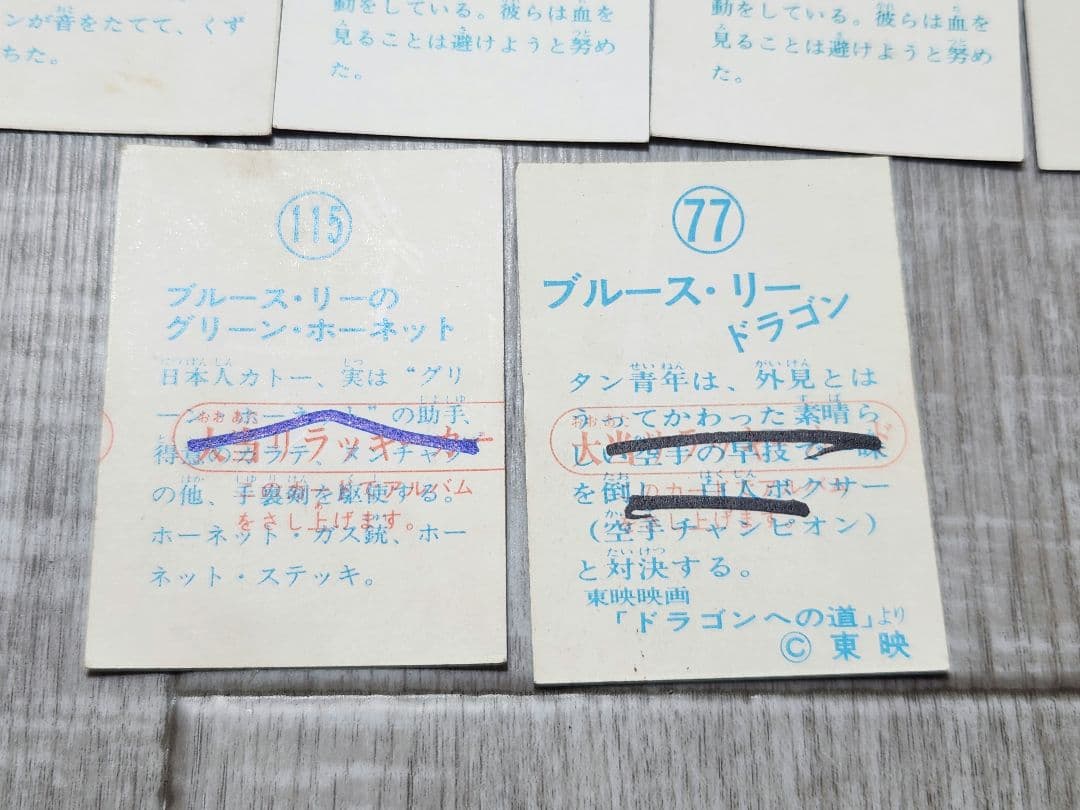 ンが音をたてて、くず
ちた。
動をしている。彼らは血を
見ることは避けようと努め
た。
動をしている。彼らは血を
見ることは避けようと努め
た。
115
ブルース・リーの
グリーン・ホーネット
日本人カトー、実は“グリ
ーン・ホーネット”の助手、
得意のカラテ、ヌンチャク
の他、手裏剣を駆使する。
ホーネット・ガス銃、ホー
ネット・ステッキ。
大当りラッキーカー
このカードでアルバム
をさし上げます。
77
ブルース・リー
ドラゴン
タン青年は、外見とは
うってかわった素晴ら
しい空手の早技で一味
を倒し、白人ボクサー
(空手チャンピオン)
と対決する。
東映映画
「ドラゴンへの道」より
©東映
大当りラッキーカード
のカードでアルバム
をさし上げます